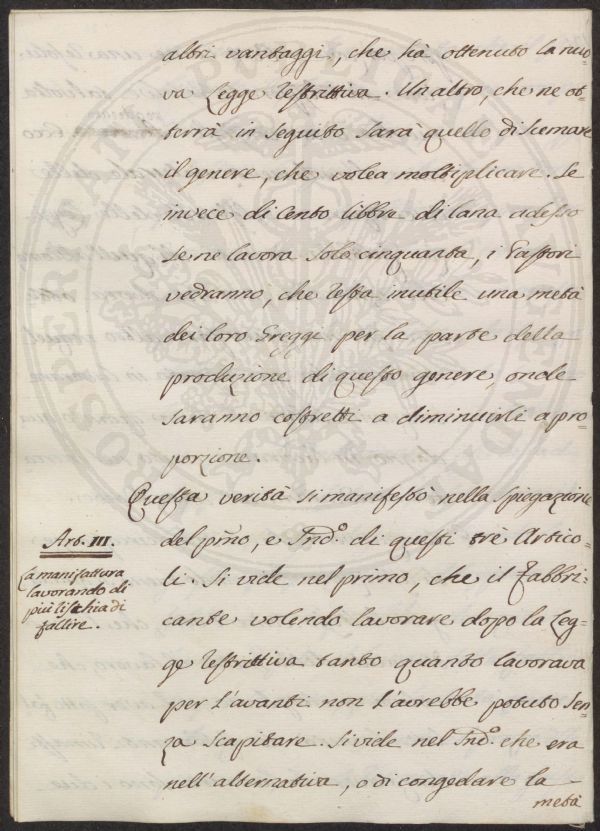 altri vantaggi, che hà ottenuto la nuo-
va Legge restrittiva. Un altro, che ne ot-
terrà in seguito sarà quello di scemare
il genere, che volea moltiplicare. Se
invece di cento libbre di lana adesso
se ne lavora solo cinquanta, i Pastori
vedranno, che resta inutile una metà
dei loro Greggi per la parte della
produzione di questo genere, onde
saranno costretti a diminuirli a pro-
porzione.
Questa verità si manifestò nella spiegazione
Art. III.
del pmo, e Sndo. di questi trè Artico-
La manifattura
lavorando di
più rischia di
fallire.
li. Si vide nel primo, che il Fabbri-
cante volendo lavorare dopo la Leg-
ge restrittiva tanto quanto lavorava
per l'avanti non l'avrebbe potuto sen-
za scapitare. Si vide nel Sndo. che era
nell'alternativa, o di congedare la
metà
PROSPERITATI PUBLICAE AUGENDAE